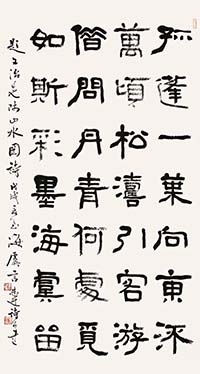 孤蓬一葉向東流
萬頃松濤引客游
借問丹青何處覓
如斯彩墨海虞留
題 山水圖詩 戊戌 海虞言恭達詩書